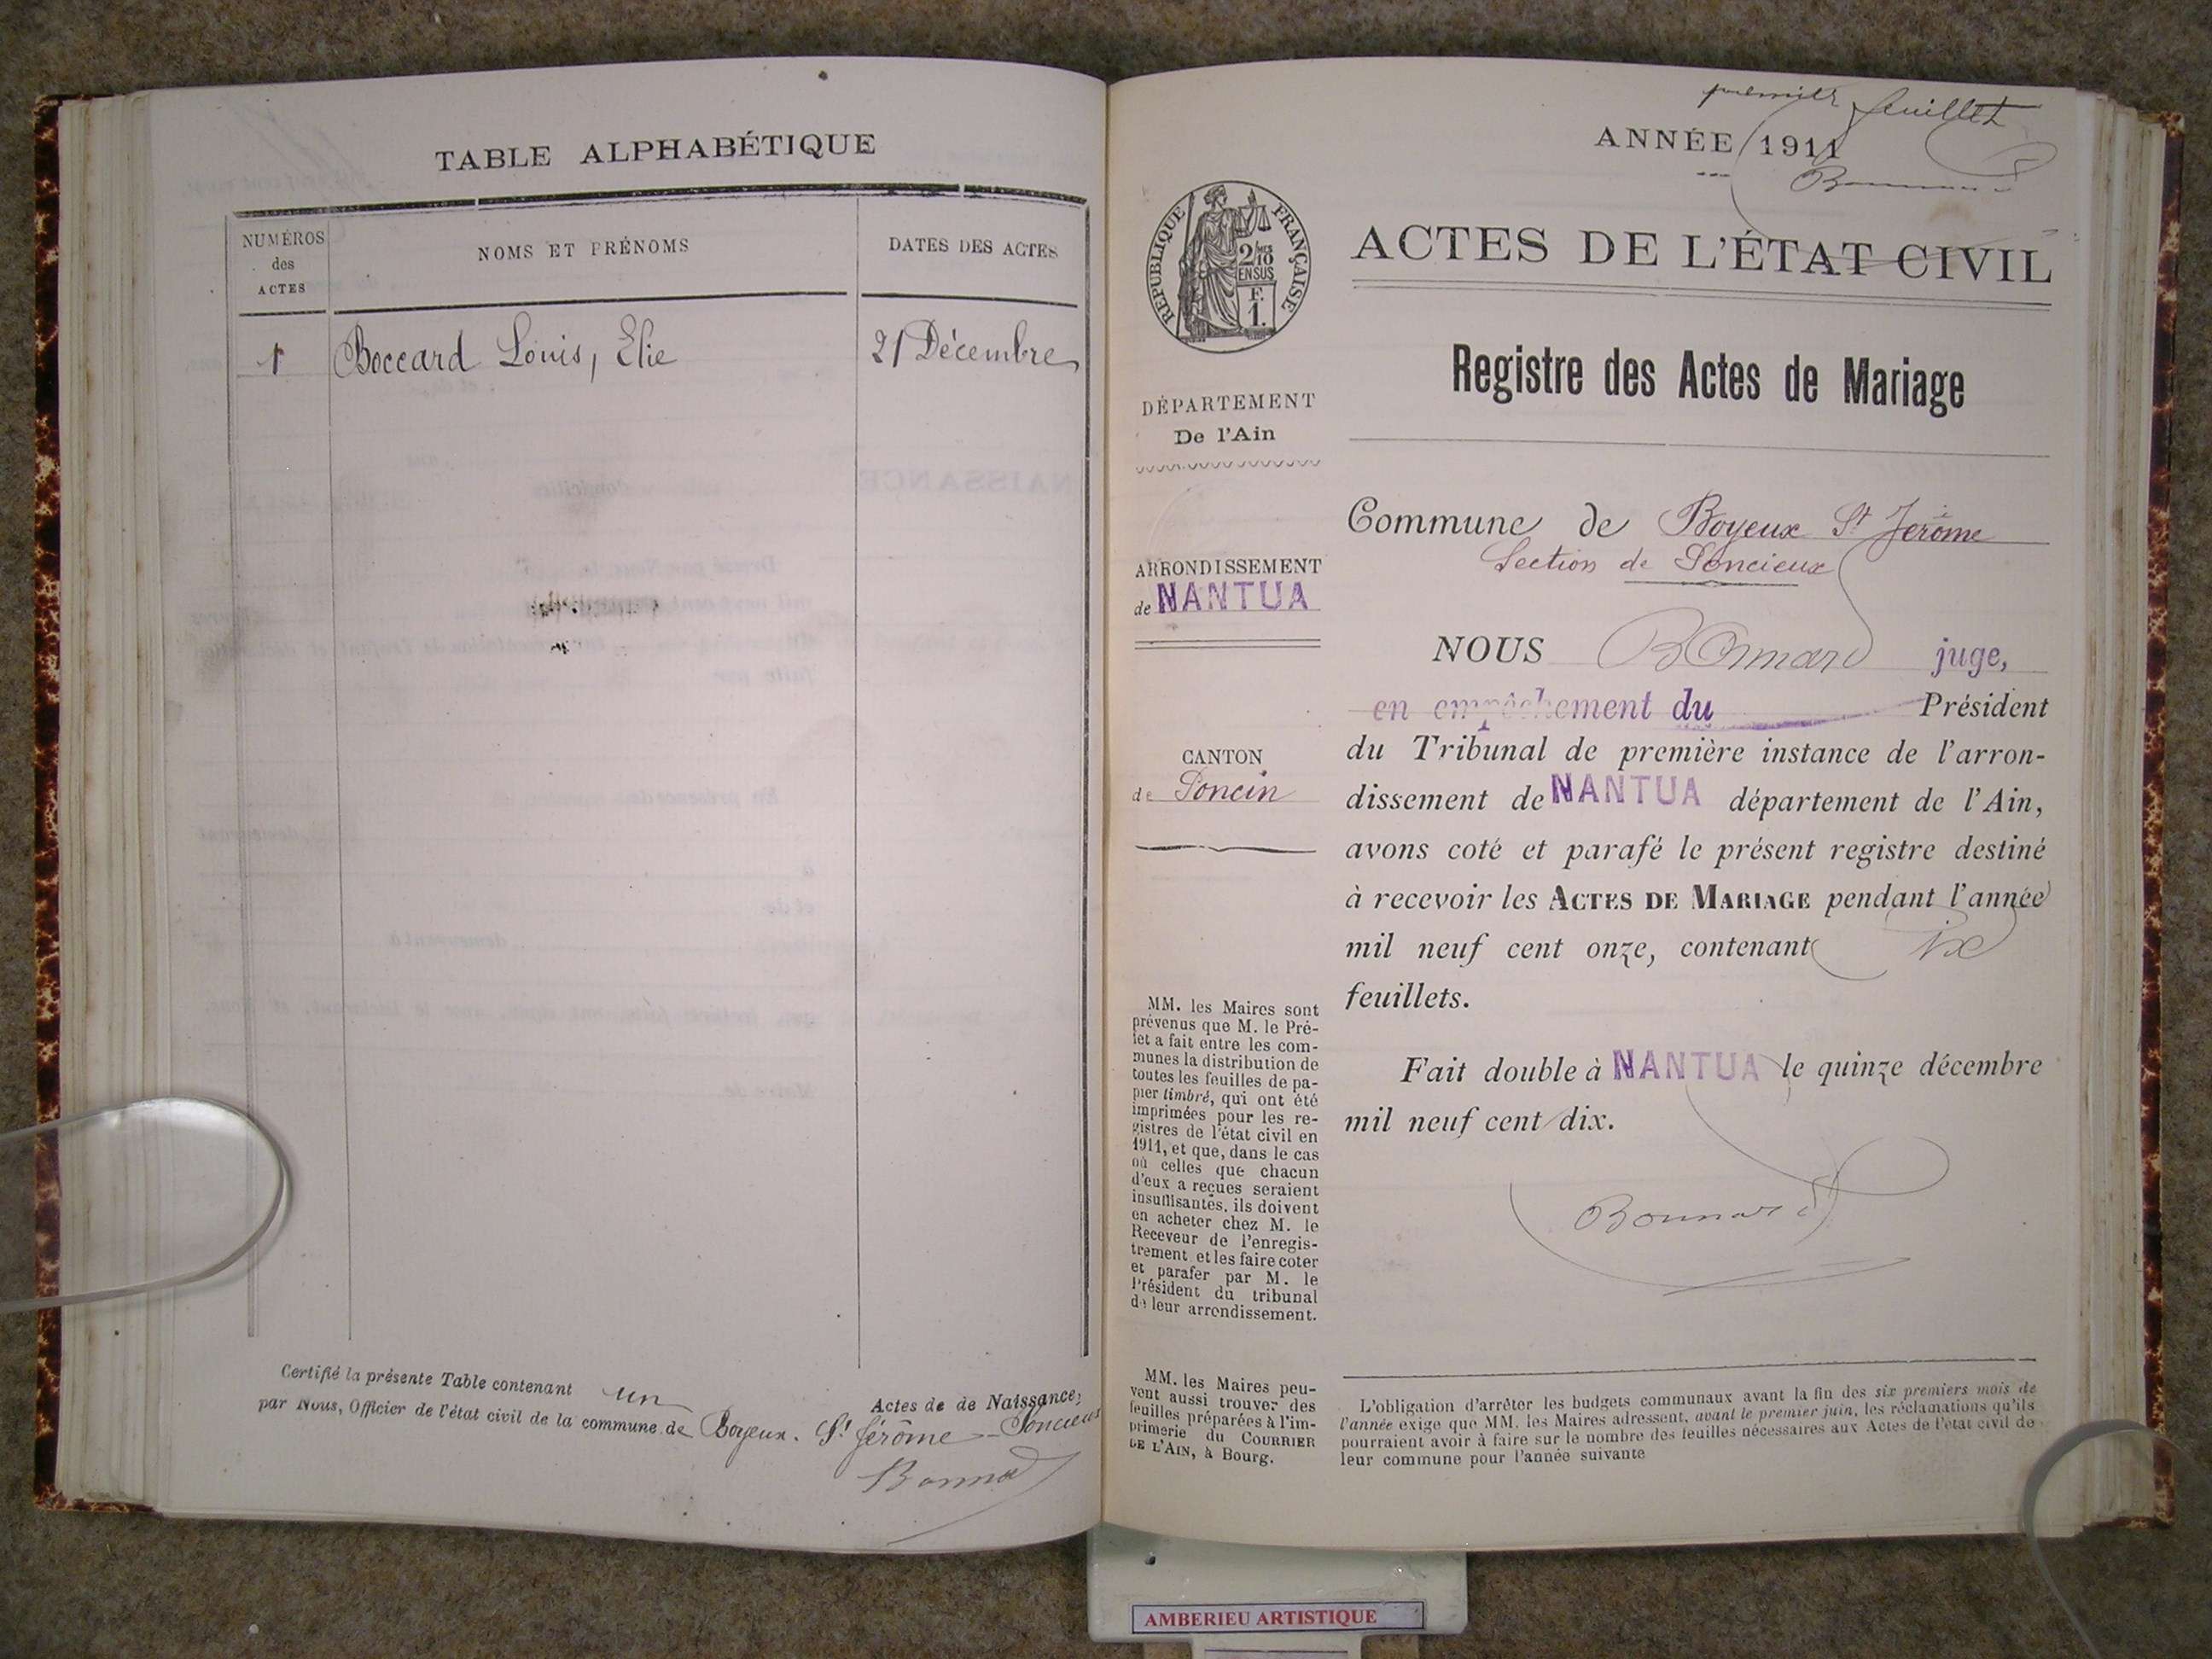 TABLE ALPHABÉTIQUE
NUMÉROS
des
ACTES
NOMS ET PRÉNOMS
DATES DES ACTES
1 Boccard Louis, Elie 21 Décembre
Certifié la présente Table contenant un Actes de de Naissance;
par Nous, Officier de l'état civil de la commune de Boyeux. St Jérôme - Poncieux
premier feuillet
ANNÉE 1911
Bonnard
RÉPUBLIQUE FRANÇAISE
2/10
EN SUS
F.
1.
ACTES DE L'ÉTAT CIVIL
Registre des Actes de Mariage
DÉPARTEMENT
De l'Ain
ARRONDISSEMENT
de NANTUA
CANTON
de Poncin
MM. les Maires sont
prévenus que M. le Pré-
fet a fait entre les com-
munes la distribution de
toutes les feuilles de pa-
pier timbré, qui ont été
imprimées pour les re-
gistres de l'état civil en
1911, et que, dans le cas
où celles que chacun
d'eux a reçues seraient
insuffisantes, ils doivent
en acheter chez M. le
Receveur de l'enregis-
trement et les faire coter
et parafer par M. le
Président du tribunal
de leur arrondissement.
MM. les Maires peu-
vent aussi trouver des
feuilles préparées à l'im-
primerie du COURRIER
DE L'AIN, à Bourg.
Commune de Boyeux St Jerôme
Section de Poncieux
NOUS Bonnard juge,
en empêchement du Président
du Tribunal de première instance de l'arron-
dissement de NANTUA département de l'Ain,
avons coté et parafé le présent registre destiné
à recevoir les ACTES DE MARIAGE pendant l'année
mil neuf cent onze, contenant
feuillets.
Fait double à NANTUA le quinze décembre
mil neuf cent dix.
Bonnard
L'obligation d'arrêter les budgets communaux avant la fin des six premiers mois de
l'année exige que MM. les Maires adressent, avant le premier juin, les réclamations qu'ils
pourraient avoir à faire sur le nombre des feuilles nécessaires aux Actes de l'état civil de
leur commune pour l'année suivante
AMBERIEU ARTISTIQUE